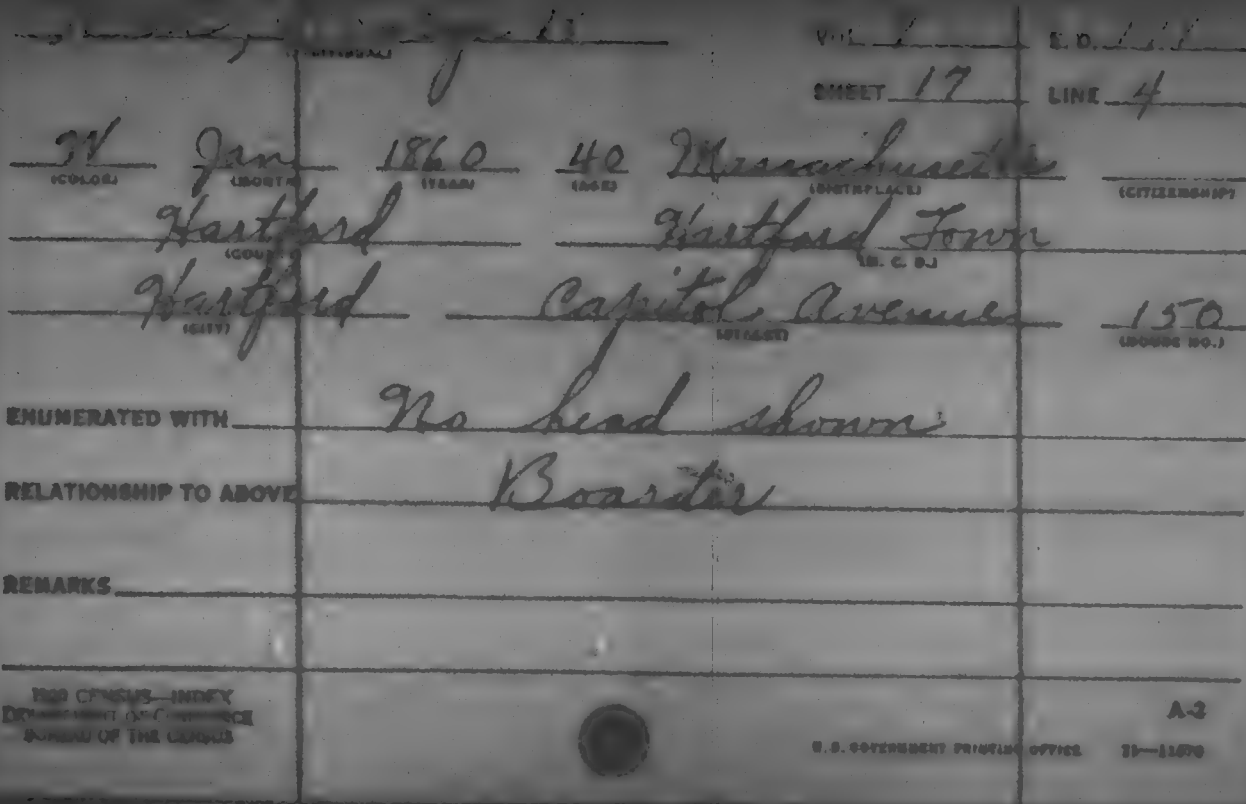 (INDIVIDUAL) VOL. 1 E. D.
SHEET 17 LINE 4
W Jan 1860 40 Massachusetts
(COLOR) (MONTH) (YEAR) (AGE) (BIRTHPLACE) (CITIZENSHIP)
Hartford Hartford Town
(COUNTY) (M. C. D.)
Hartford Capitol Avenue 150
(CITY) (STREET) (HOUSE NO.)
ENUMERATED WITH No head shown
RELATIONSHIP TO ABOVE Boarder
REMARKS
1900 CENSUS—INDEX
DEPARTMENT OF COMMERCE A-2
BUREAU OF THE CENSUS U.S. GOVERNMENT PRINTING OFFICE